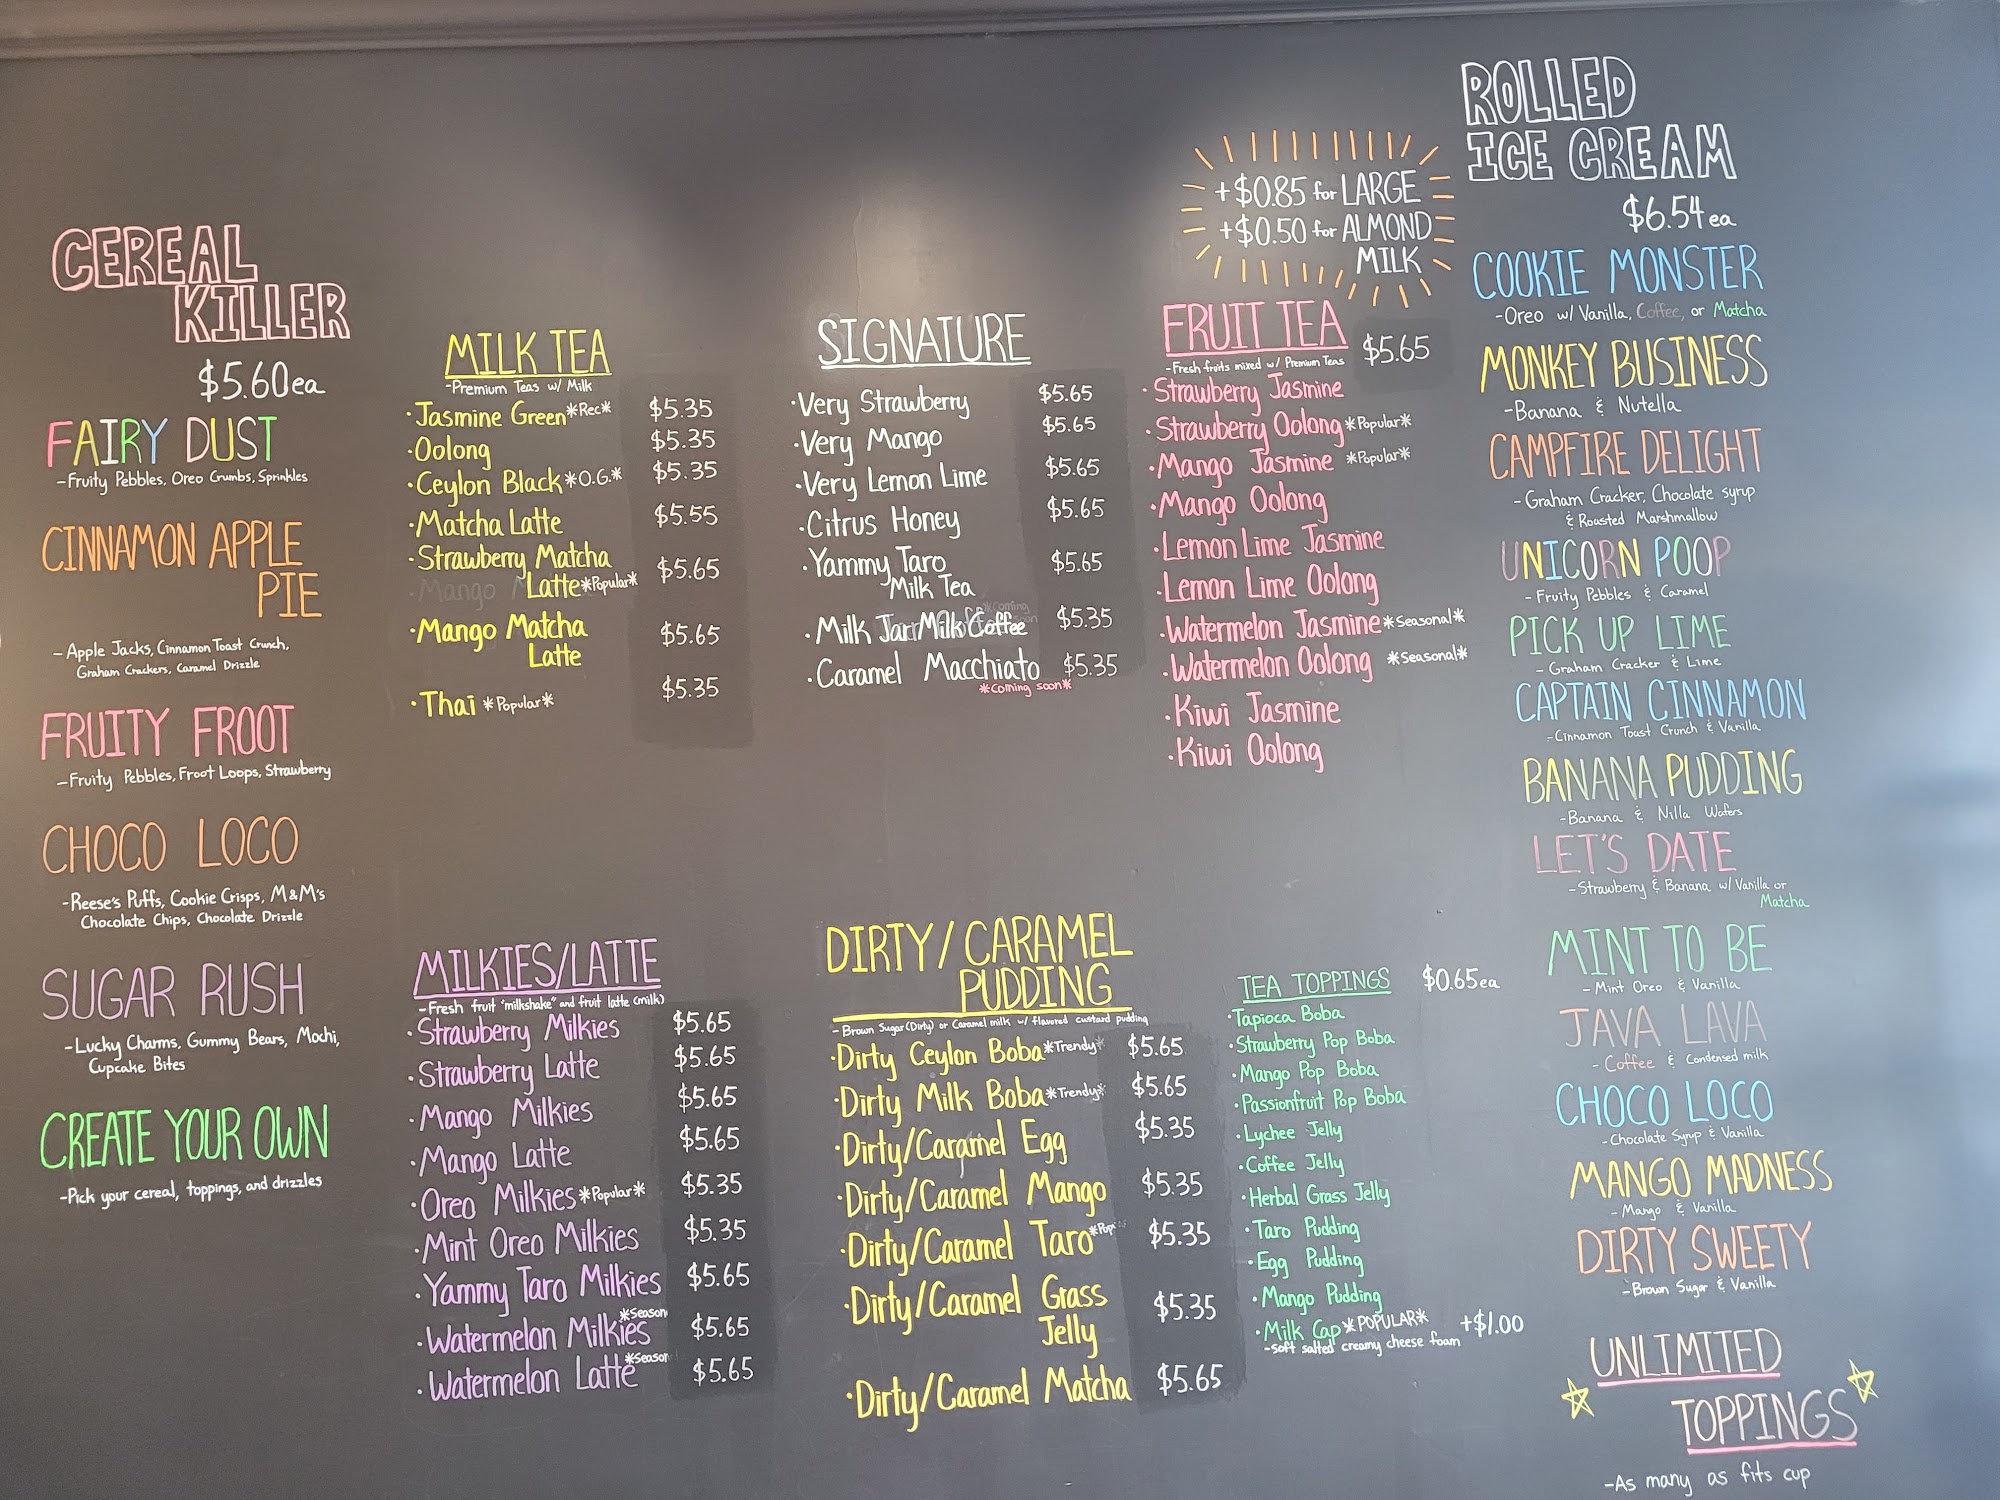 CEREAL
KILLER
$5.60ea
FAIRY DUST
-Fruity Pebbles, Oreo Crumbs, Sprinkles
CINNAMON APPLE
PIE
-Apple Jacks, Cinnamon Toast Crunch,
Graham Crackers, Caramel Drizzle
FRUITY FROOT
-Fruity Pebbles, Froot Loops, Strawberry
CHOCO LOCO
-Reese's Puffs, Cookie Crisps, M&M's
Chocolate Chips, Chocolate Drizzle
SUGAR RUSH
-Lucky Charms, Gummy Bears, Mochi,
Cupcake Bites
CREATE YOUR OWN
-Pick your cereal, toppings, and drizzles
MILK TEA
-Premium Teas w/ Milk
·Jasmine Green *Rec* $5.35
·Oolong $5.35
·Ceylon Black *O.G.* $5.35
·Matcha Latte $5.55
·Strawberry Matcha
Latte *Popular* $5.65
Mango
·Mango Matcha
Latte $5.65
·Thai *Popular* $5.35
MILKIES/LATTE
-Fresh fruit "milkshake" and fruit latte (milk)
·Strawberry Milkies $5.65
·Strawberry Latte $5.65
·Mango Milkies $5.65
·Mango Latte $5.65
·Oreo Milkies *Popular* $5.35
·Mint Oreo Milkies $5.35
·Yammy Taro Milkies $5.65
*Season
·Watermelon Milkies $5.65
·Watermelon Latte *Season $5.65
SIGNATURE
·Very Strawberry $5.65
·Very Mango $5.65
·Very Lemon Lime $5.65
·Citrus Honey $5.65
·Yammy Taro
Milk Tea $5.65
*Coming
·Milk Jar Milk Coffee $5.35
·Caramel Macchiato $5.35
*Coming soon*
DIRTY/CARAMEL
PUDDING
-Brown Sugar (Dirty) or Caramel milk w/ flavored custard pudding
·Dirty Ceylon Boba *Trendy* $5.65
·Dirty Milk Boba *Trendy* $5.65
·Dirty/Caramel Egg $5.35
·Dirty/Caramel Mango $5.35
·Dirty/Caramel Taro *Pop $5.35
·Dirty/Caramel Grass
Jelly $5.35
·Dirty/Caramel Matcha $5.65
+$0.85 for LARGE
+$0.50 for ALMOND
MILK
FRUIT TEA $5.65
-Fresh fruits mixed w/ Premium Teas
·Strawberry Jasmine
·Strawberry Oolong *Popular*
·Mango Jasmine *Popular*
·Mango Oolong
·Lemon Lime Jasmine
·Lemon Lime Oolong
·Watermelon Jasmine *Seasonal*
·Watermelon Oolong *Seasonal*
·Kiwi Jasmine
·Kiwi Oolong
TEA TOPPINGS $0.65ea
·Tapioca Boba
·Strawberry Pop Boba
·Mango Pop Boba
·Passionfruit Pop Boba
·Lychee Jelly
·Coffee Jelly
·Herbal Grass Jelly
·Taro Pudding
·Egg Pudding
·Mango Pudding
·Milk Cap *POPULAR* +$1.00
-soft salted creamy cheese foam
ROLLED
ICE CREAM
$6.54 ea
COOKIE MONSTER
-Oreo w/ Vanilla, Coffee, or Matcha
MONKEY BUSINESS
-Banana & Nutella
CAMPFIRE DELIGHT
-Graham Cracker, Chocolate syrup
& Roasted Marshmallow
UNICORN POOP
-Fruity Pebbles & Caramel
PICK UP LIME
-Graham Cracker & Lime
CAPTAIN CINNAMON
-Cinnamon Toast Crunch & Vanilla
BANANA PUDDING
-Banana & Nilla Wafers
LET'S DATE
-Strawberry & Banana w/ Vanilla or
Matcha
MINT TO BE
-Mint Oreo & Vanilla
JAVA LAVA
-Coffee & Condensed milk
CHOCO LOCO
-Chocolate Syrup & Vanilla
MANGO MADNESS
-Mango & Vanilla
DIRTY SWEETY
-Brown Sugar & Vanilla
UNLIMITED
TOPPINGS
-As many as fits cup